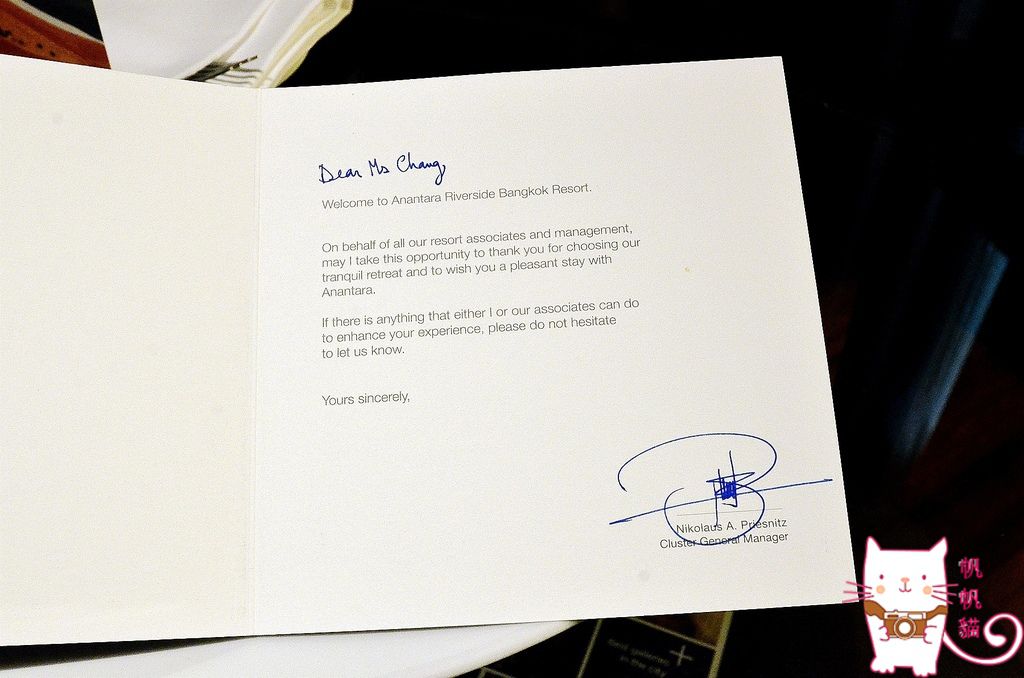 Dear Ms Chang,
Welcome to Anantara Riverside Bangkok Resort.
On behalf of all our resort associates and management,
may I take this opportunity to thank you for choosing our
tranquil retreat and to wish you a pleasant stay with
Anantara.
If there is anything that either I or our associates can do
to enhance your experience, please do not hesitate
to let us know.
Yours sincerely,
Nikolaus A. Priesnitz
Cluster General Manager
best galleries
in the city
帆帆貓